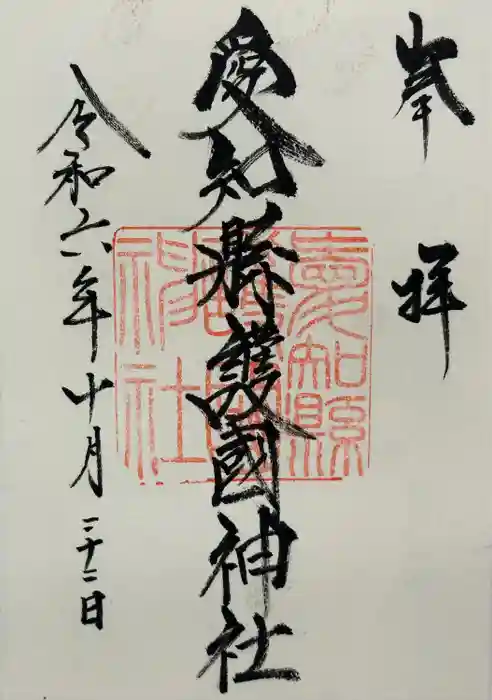 奉拝
愛知縣護國神社
愛知縣
護國
神社
令和六年十月二十二日